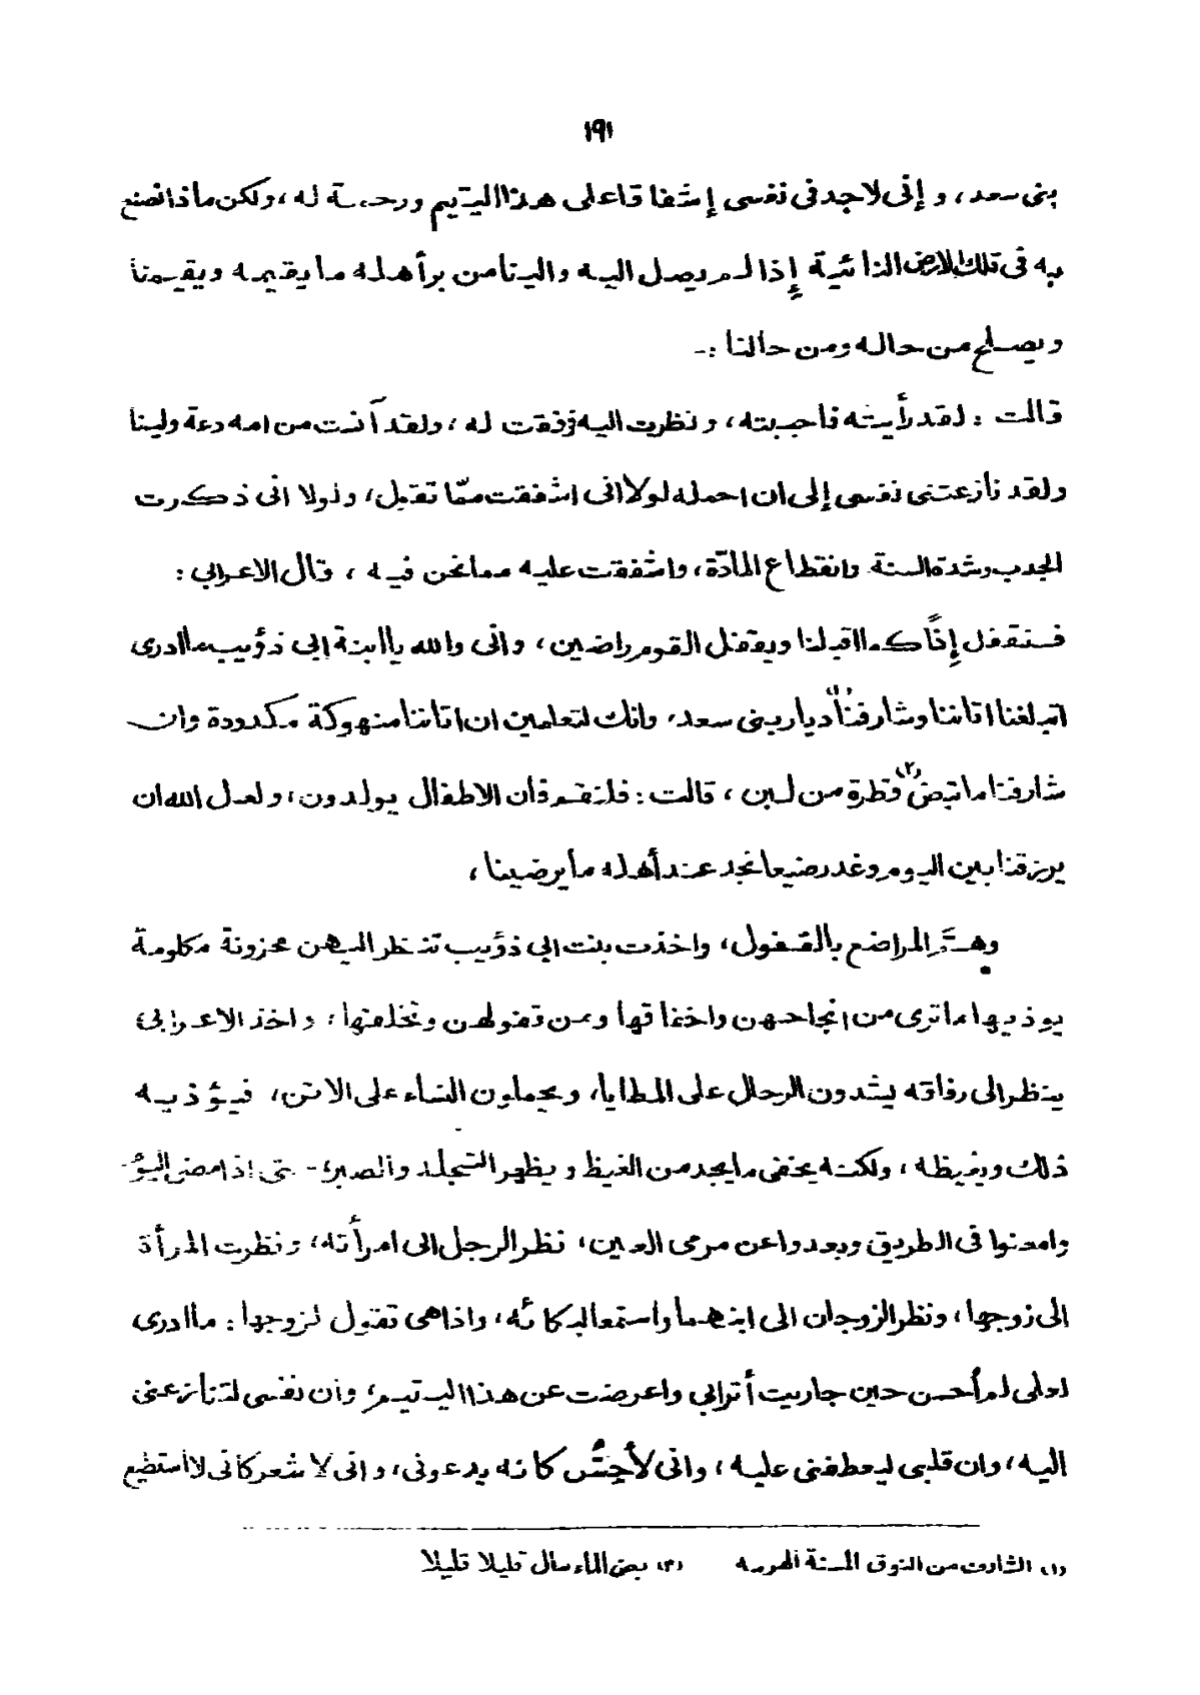 ١٩١
بنى سعد، و إنى لاجد فى نفسى إشفاقا على هذا اليتيم ورحمة له، ولكن ماذا نصنع
به فى تلك الارض النائية إذا لم يصل اليه والينا من برأهله ما يقيمه ويقيمنا
ويصلح من حاله ومن حالنا :-
قالت : لقد رأيته فاحببته، ونظرت اليه فرفقت له، ولقد آنست من امه دعة ولينا
ولقد نازعتنى نفسى إلى ان احمله لولا انى اشفقت ممّا تقبل، ولولا انى ذكرت
الجدب وشدة السنة وانقطاع المادّة، واشفقت عليه مما نحن فيه ، قال الاعرابي :
فسنقفل إذًا كما اقبلنا ويقفل القوم راضين، وانى والله يا ابنة ابي ذؤيب ما ادرى
اتبلغنا اتاننا وشارفنا(١) ديار بنى سعد، وانك لتعلمين ان اتاننا منهوكة مكدودة وان
شارفنا ما تبض(٢) قطرة من لبن ، قالت : فلنقم فان الاطفال يولدون، ولعل الله ان
يرزقنا بين اليوم وغد رضيعا نجد عند أهله ما يرضينا ،
وهمَّ المراضع بالقفول، واخذت بنت ابي ذؤيب تنظر اليهن محزونة مكلومة
يوذيها ما ترى من انجاحهن واخفاقها ومن قفولهن وتخلفها، واخذ الاعرابي
ينظر الى رفاقه يشدون الرحال على المطايا، ويحملون النساء على الاتن، فيؤذيه
ذلك ويغيظه ، ولكنه يخفى ما يجد من الغيظ و يظهر التجلد والصبر، حتى اذا مضى
وامعنوا فى الطريق وبعدوا عن مرمى العين، نظر الرجل الى امرأته، ونظرت المرأة
الى زوجها، ونظر الزوجان الى ابنهما واستمعا لبكائه، واذا هى تقول لزوجها : ما ادرى
لعلى لم أحسن حين جاريت أترابي واعرضت عن هذا اليتيم، وان نفسى لتنازعنى
اليه، وان قلبى ليعطفنى عليه ، وانى لأحِسُّ كانه يدعونى، وانى لا شعر كانى لا استطيع
(١) الشارف من النوق المسنة الهرمة (٢) بض الماء سال قليلا قليلا